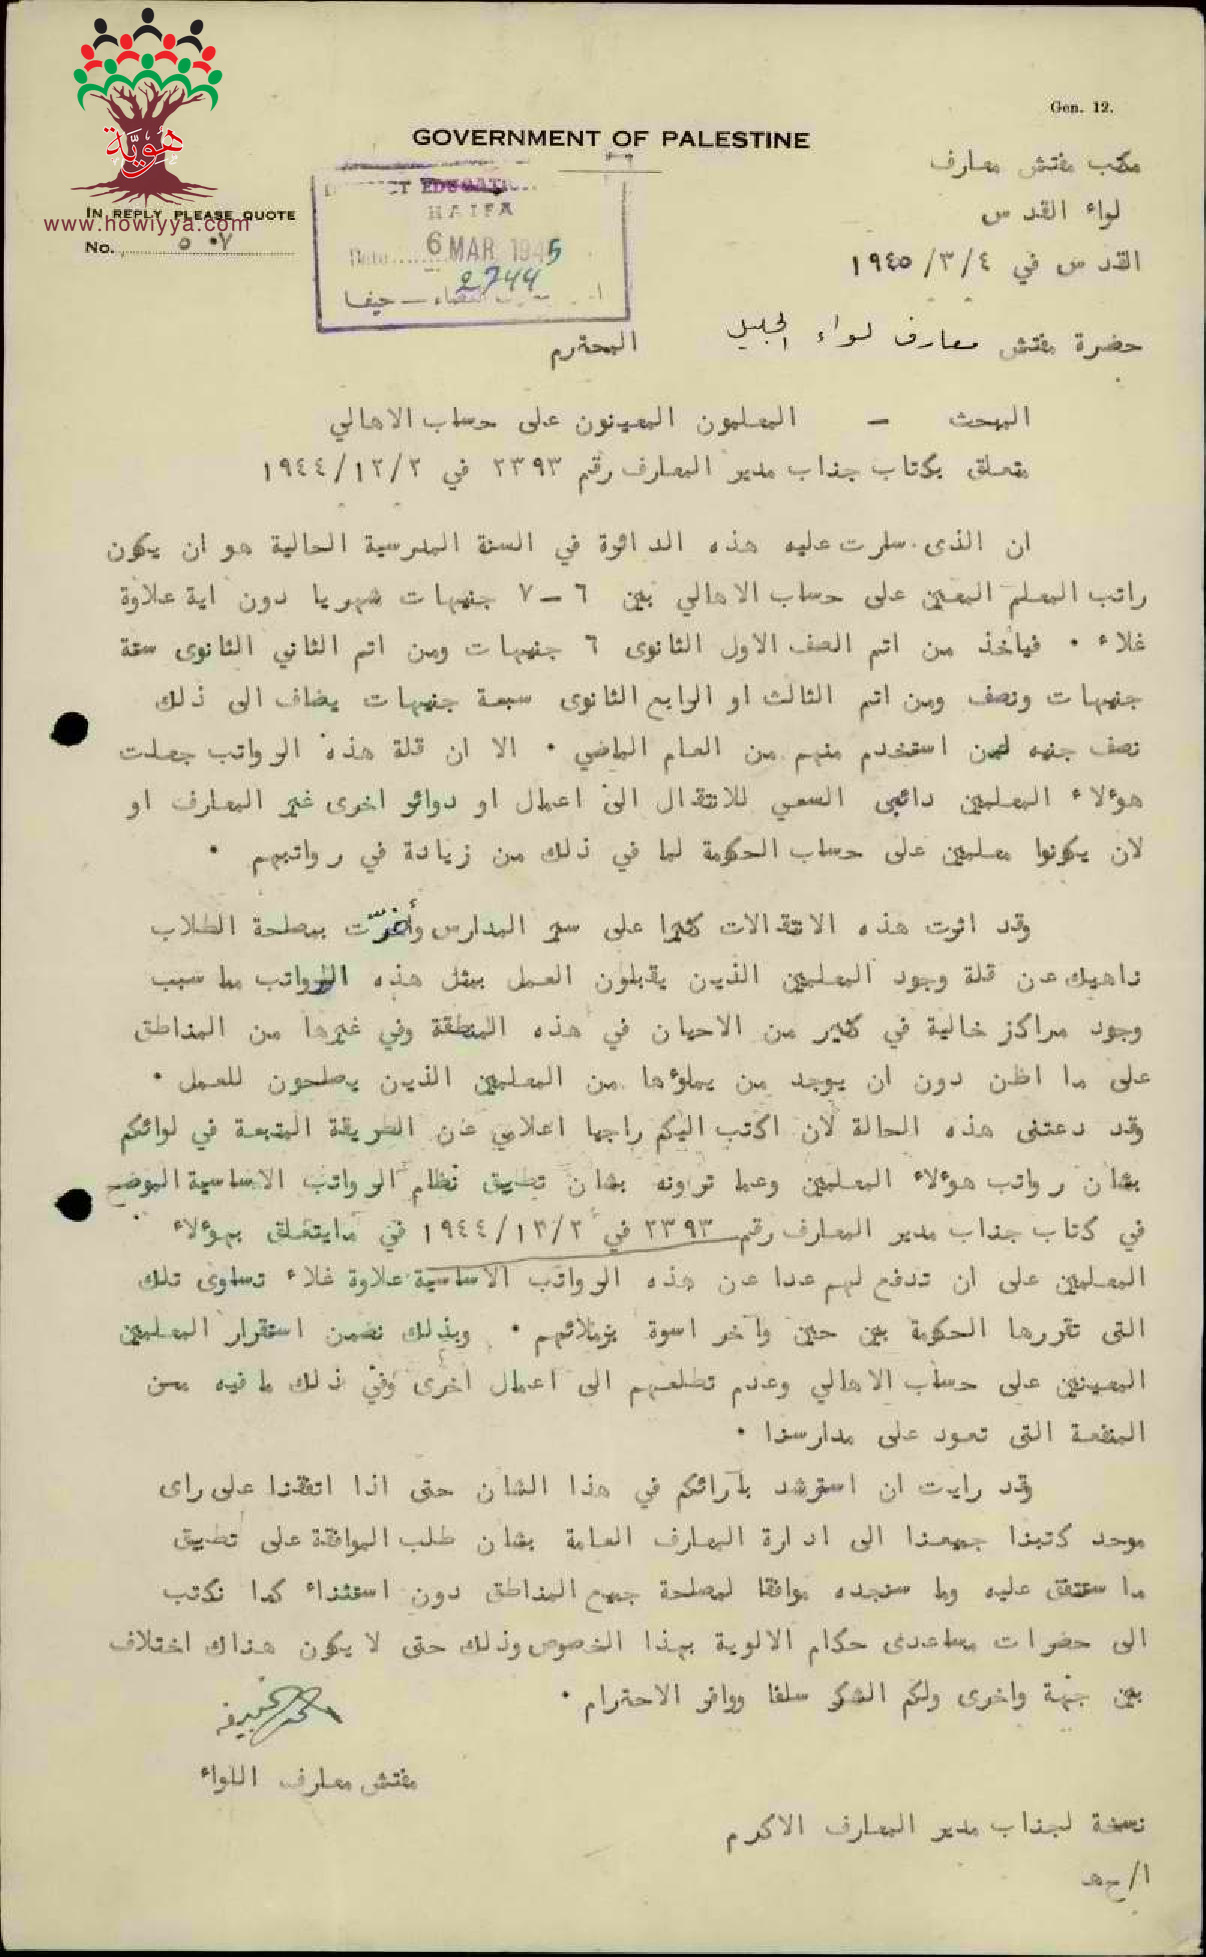 Gen. 12.
GOVERNMENT OF PALESTINE
هُويَّة
www.howiyya.com
IN REPLY PLEASE QUOTE
No. ٥٠٧
HAIFA
Date 6 MAR 1945
2744
حيفا
مكتب مفتش معارف
لواء القدس
القدس في ١٩٤٥/٣/٤
حضرة مفتش معارف لواء الجليل المحترم
البحث - المعلمون المعينون على حساب الاهالي
متعلق بكتاب جناب مدير المعارف رقم ٢٣٩٣ في ١٩٤٤/١٢/٢
ان الذى سارت عليه هذه الدائرة في السنة المدرسية الحالية هو ان يكون
راتب المعلم المعين على حساب الاهالي بين ٦ - ٧ جنيهات شهريا دون اية علاوة
غلاء . فيأخذ من اتم الصف الاول الثانوى ٦ جنيهات ومن اتم الثاني الثانوى ستة
جنيهات ونصف ومن اتم الثالث او الرابع الثانوى سبعة جنيهات يضاف الى ذلك
نصف جنيه لمن استخدم منهم من العام الماضي . الا ان قلة هذه الرواتب جعلت
هؤلاء المعلمين دائبى السعي للانتقال الى اعمال او دوائر اخرى غير المعارف او
لان يكونوا معلمين على حساب الحكومة لما في ذلك من زيادة في رواتبهم .
وقد اثرت هذه الانتقالات كثيرا على سير المدارس وأضرّت بمصلحة الطلاب
ناهيك عن قلة وجود المعلمين الذين يقبلون العمل بمثل هذه الرواتب مما سبب
وجود مراكز خالية في كثير من الاحيان في هذه المنطقة وفي غيرها من المناطق
على ما اظن دون ان يوجد من يملؤها من المعلمين الذين يصلحون للعمل .
وقد دعتنى هذه الحالة لان اكتب اليكم راجيا اعلامي عن الطريقة المتبعة في لوائكم
بشان رواتب هؤلاء المعلمين وعما ترونه بشان تطبيق نظام الرواتب الاساسية الموضح
في كتاب جناب مدير المعارف رقم ٢٣٩٣ في ١٩٤٤/١٢/٢ في مايتعلق بهؤلاء
المعلمين على ان تدفع لهم عدا عن هذه الرواتب الاساسية علاوة غلاء تساوى تلك
التى تقررها الحكومة بين حين وآخر اسوة بزملائهم . وبذلك نضمن استقرار المعلمين
المعينين على حساب الاهالي وعدم تطلعهم الى اعمال اخرى وفي ذلك ما فيه من
المنفعة التى تعود على مدارسنا .
وقد رايت ان استرشد بآرائكم في هذا الشان حتى اذا اتفقنا على راى
موحد كتبنا جميعنا الى ادارة المعارف العامة بشان طلب الموافقة على تطبيق
ما سنتفق عليه وما سنجده موافقا لمصلحة جميع المناطق دون استثناء كما نكتب
الى حضرات مساعدى حكام الالوية بهذا الخصوص وذلك حتى لا يكون هناك اختلاف
بين جهة واخرى ولكم الشكر سلفا ووافر الاحترام .
مفتش معارف اللواء
نسخة لجناب مدير المعارف الاكرم
ا/حھ